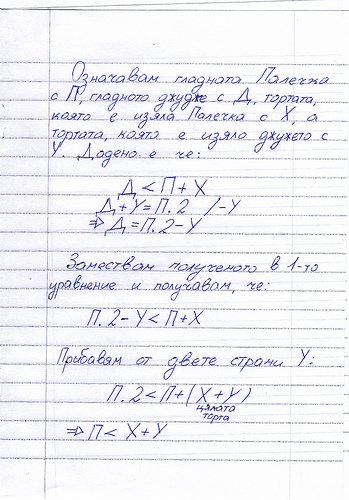 Означавам гладната Палечка
с П, гладното джудже с Д, тортата,
която е изяла Палечка с X, а
тортата, която е изяло джуджето с
Y. Дадено е че:
Д < П + X
Д + Y = П. 2 /-Y
⇒ Д = П. 2 - Y
Замествам полученото в 1-то
уравнение и получавам, че:
П. 2 - Y < П + X
Прибавям от двете страни Y:
П. 2 < П + (X + Y)
цялата
торта
⇒ П < X + Y